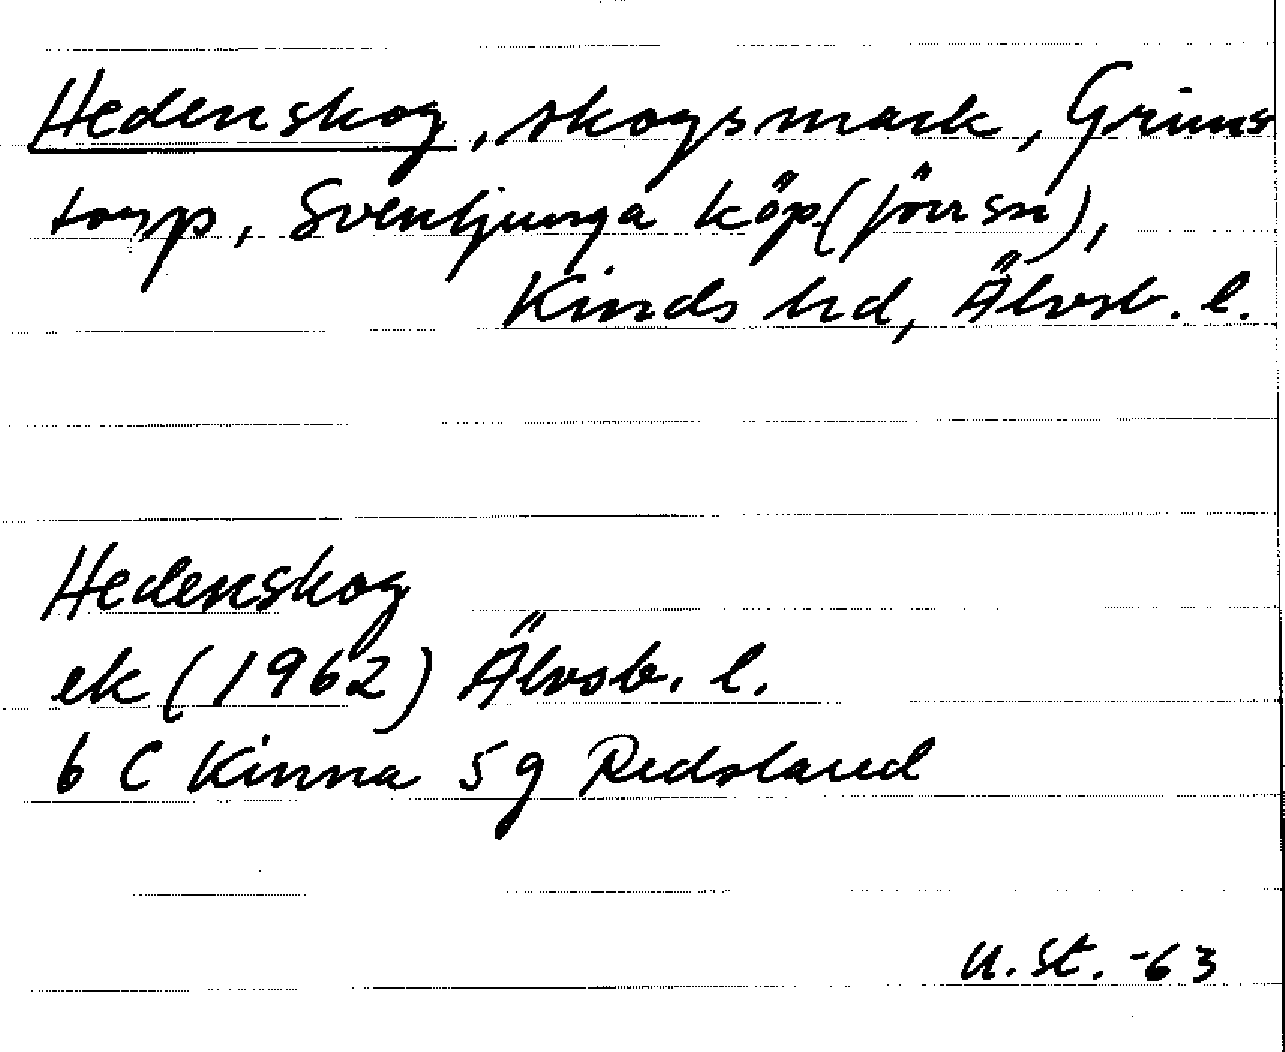 Hedenskog, skogsmark, Grims
torp, Svenljunga köp (förr sn),
Kinds hd, Älvsb. l.
Hedenskog
ek (1962) Älvsb. l.
6 C Kinna 5 g Redslared
U. St. -63